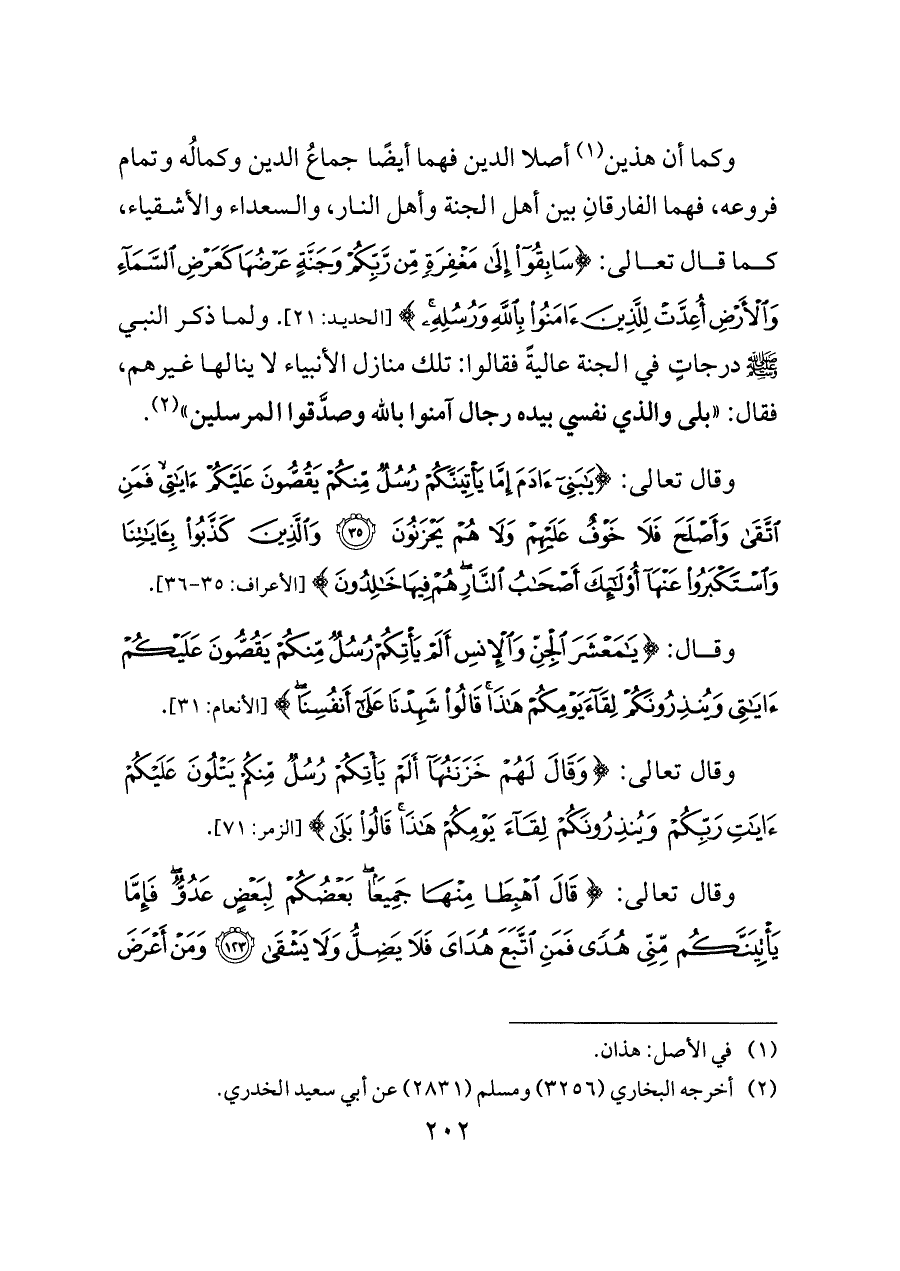 وكما أن هذين(١) أصلا الدين فهما أيضًا جماعُ الدين وكمالُه وتمام
فروعه، فهما الفارقانِ بين أهل الجنة وأهل النار، والسعداء والأشقياء،
كما قال تعالى: ﴿سَابِقُوٓا۟ إِلَىٰ مَغْفِرَةٍ مِّن رَّبِّكُمْ وَجَنَّةٍ عَرْضُهَا كَعَرْضِ ٱلسَّمَآءِ
وَٱلْأَرْضِ أُعِدَّتْ لِلَّذِينَ ءَامَنُوا۟ بِٱللَّهِ وَرُسُلِهِۦ ۚ﴾ [الحديد: ٢١]. ولما ذكر النبي
ﷺ درجاتٍ في الجنة عاليةً فقالوا: تلك منازل الأنبياء لا ينالها غيرهم،
فقال: «بلى والذي نفسي بيده رجال آمنوا بالله وصدَّقوا المرسلين»(٢).
وقال تعالى: ﴿يَٰبَنِىٓ ءَادَمَ إِمَّا يَأْتِيَنَّكُمْ رُسُلٌ مِّنكُمْ يَقُصُّونَ عَلَيْكُمْ ءَايَٰتِى ۙ فَمَنِ
ٱتَّقَىٰ وَأَصْلَحَ فَلَا خَوْفٌ عَلَيْهِمْ وَلَا هُمْ يَحْزَنُونَ ٣٥ وَٱلَّذِينَ كَذَّبُوا۟ بِـَٔايَٰتِنَا
وَٱسْتَكْبَرُوا۟ عَنْهَآ أُو۟لَٰٓئِكَ أَصْحَٰبُ ٱلنَّارِ ۖ هُمْ فِيهَا خَٰلِدُونَ﴾ [الأعراف: ٣٥-٣٦].
وقال: ﴿يَٰمَعْشَرَ ٱلْجِنِّ وَٱلْإِنسِ أَلَمْ يَأْتِكُمْ رُسُلٌ مِّنكُمْ يَقُصُّونَ عَلَيْكُمْ
ءَايَٰتِى وَيُنذِرُونَكُمْ لِقَآءَ يَوْمِكُمْ هَٰذَا ۚ قَالُوا۟ شَهِدْنَا عَلَىٰٓ أَنفُسِنَا ۖ﴾ [الأنعام: ٣١].
وقال تعالى: ﴿وَقَالَ لَهُمْ خَزَنَتُهَآ أَلَمْ يَأْتِكُمْ رُسُلٌ مِّنكُمْ يَتْلُونَ عَلَيْكُمْ
ءَايَٰتِ رَبِّكُمْ وَيُنذِرُونَكُمْ لِقَآءَ يَوْمِكُمْ هَٰذَا ۚ قَالُوا۟ بَلَىٰ﴾ [الزمر: ٧١].
وقال تعالى: ﴿قَالَ ٱهْبِطَا مِنْهَا جَمِيعًۢا ۖ بَعْضُكُمْ لِبَعْضٍ عَدُوٌّ ۖ فَإِمَّا
يَأْتِيَنَّكُم مِّنِّى هُدًى فَمَنِ ٱتَّبَعَ هُدَاىَ فَلَا يَضِلُّ وَلَا يَشْقَىٰ ١٢٣ وَمَنْ أَعْرَضَ
(١) في الأصل: هذان.
(٢) أخرجه البخاري (٣٢٥٦) ومسلم (٢٨٣١) عن أبي سعيد الخدري.
٢٠٢